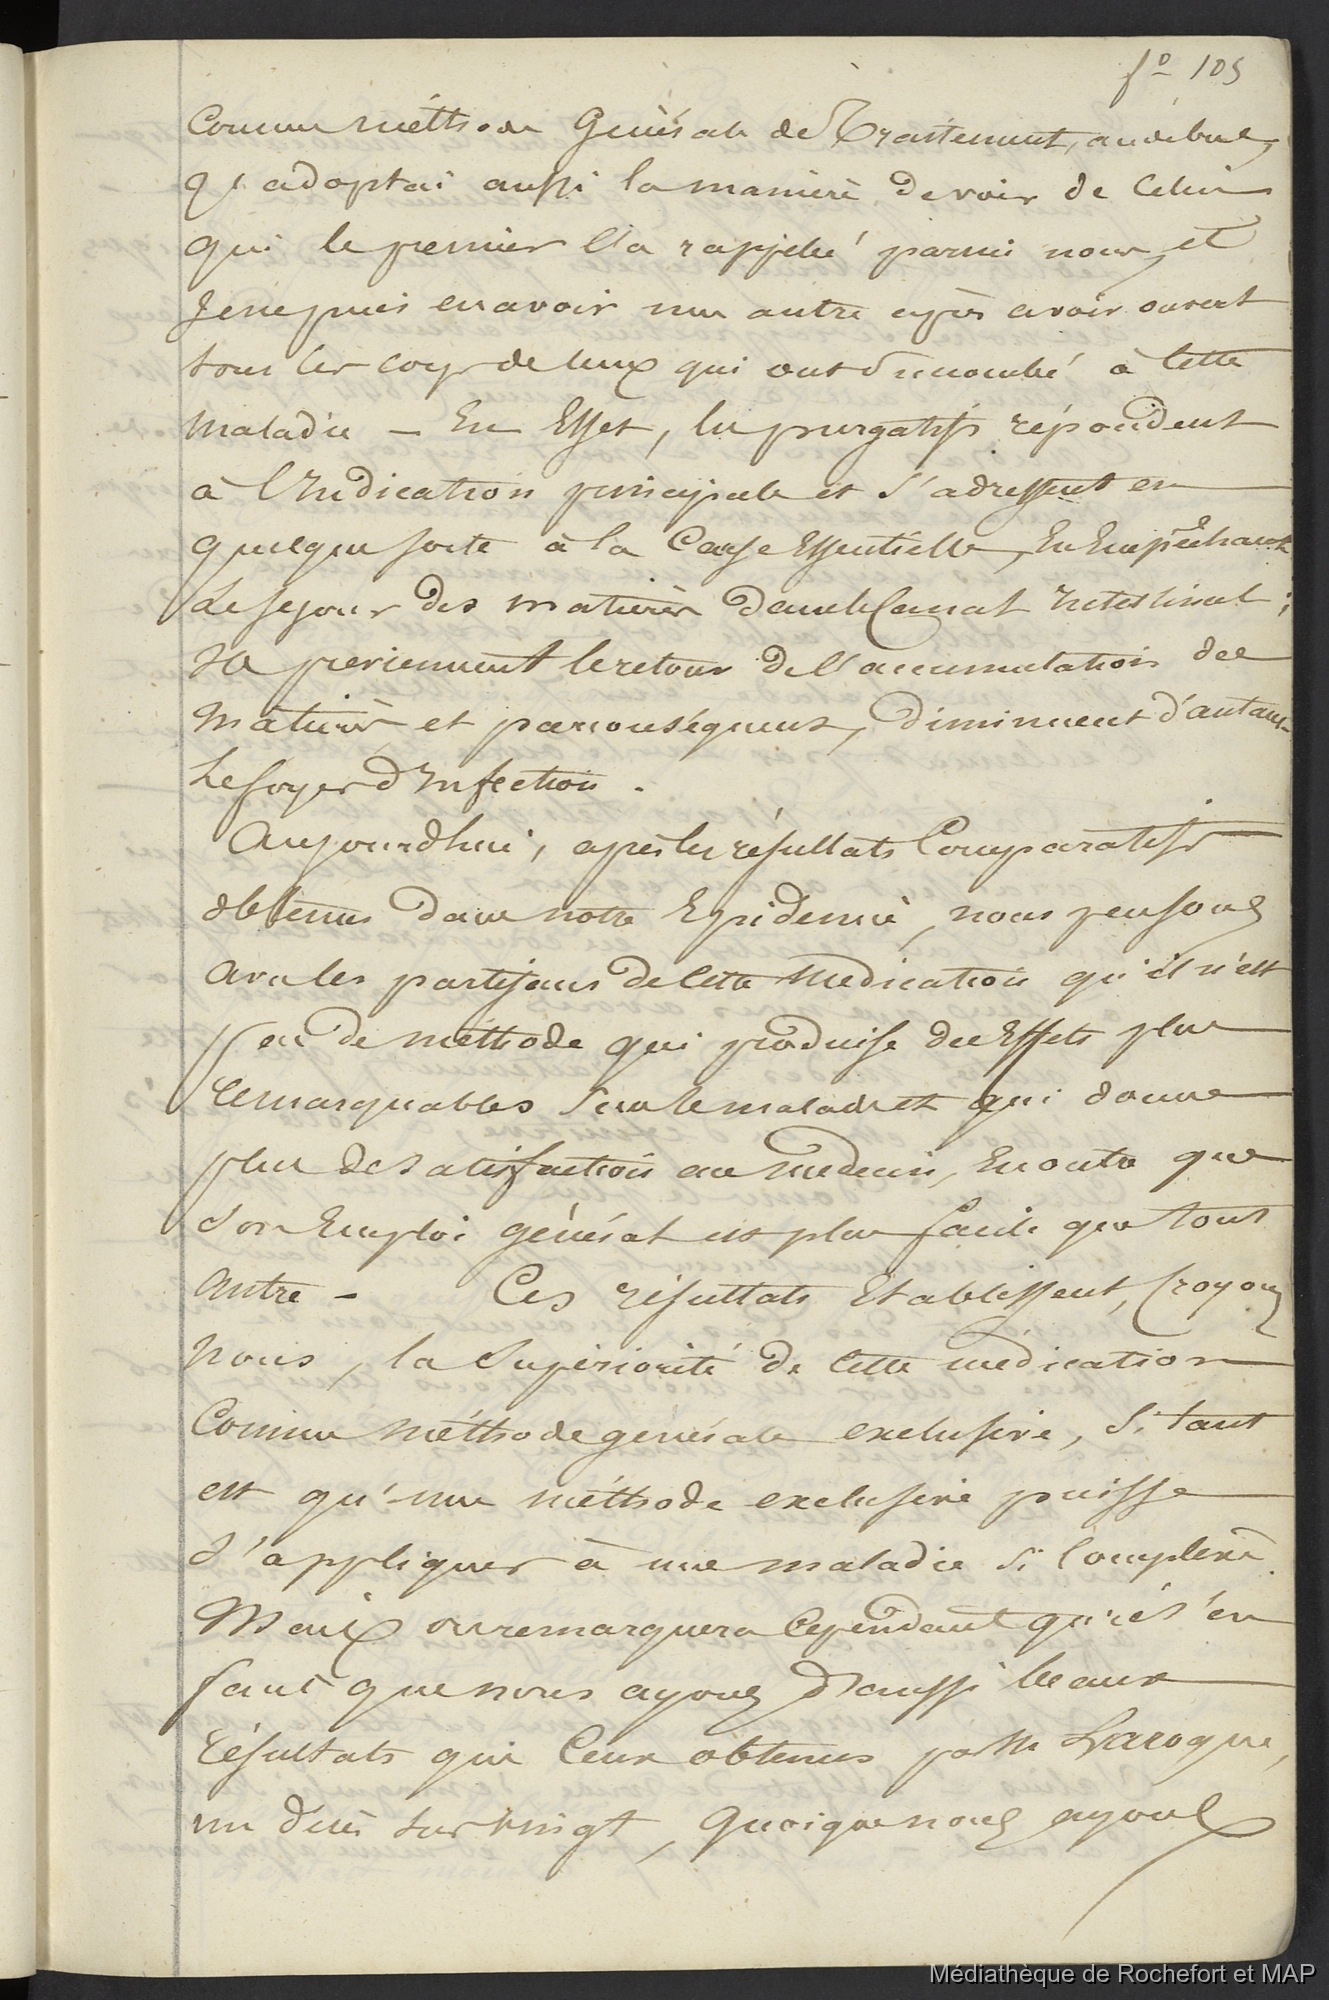 fo 105
Comme méthode Générale de Traitement, au début,
J'adoptai aussi la manière de voir de Celui
qui le premier l'a rappelé parmi nous, et
Je ne puis en avoir une autre après avoir ouvert
tous les corps de ceux qui ont Succombé à Cette
maladie — En Effet, les purgatifs répondent
à l'Indication principale et s'adressent en
quelque sorte à la Cause Essentielle, En Empêchant
Le séjour des matières dans le Canal Intestinal ;
Ils previennent le retour de l'accumulation des
matières et par conséquens, diminuent d'autant
Le foyer d'Infection .
Aujourd'hui, après les résultats Comparatifs
obtenus dans notre Epidemie, nous pensons
avec les partisans de Cette Medication qu'il n'est
pas de méthode qui produise des Effets plus
remarquables Sur le malade et qui donne
plus de Satisfaction au médecin, En outre que
Son Emploi général est plus facile que tout
autre — Ces résultats Etablissent, Croyons
nous, la Supériorité de Cette médication
Comme méthode générale exclusive, Si tant
est qu'une méthode exclusive puisse
S'appliquer à une maladie Si Complexe.
Mais on remarquera Cependant qu'il s'en
faut que nous ayons d'aussi beaux
résultats que Ceux obtenus par Mr Laroque,
un décès sur vingt, Quoique nous ayons
Médiathèque de Rochefort et MAP